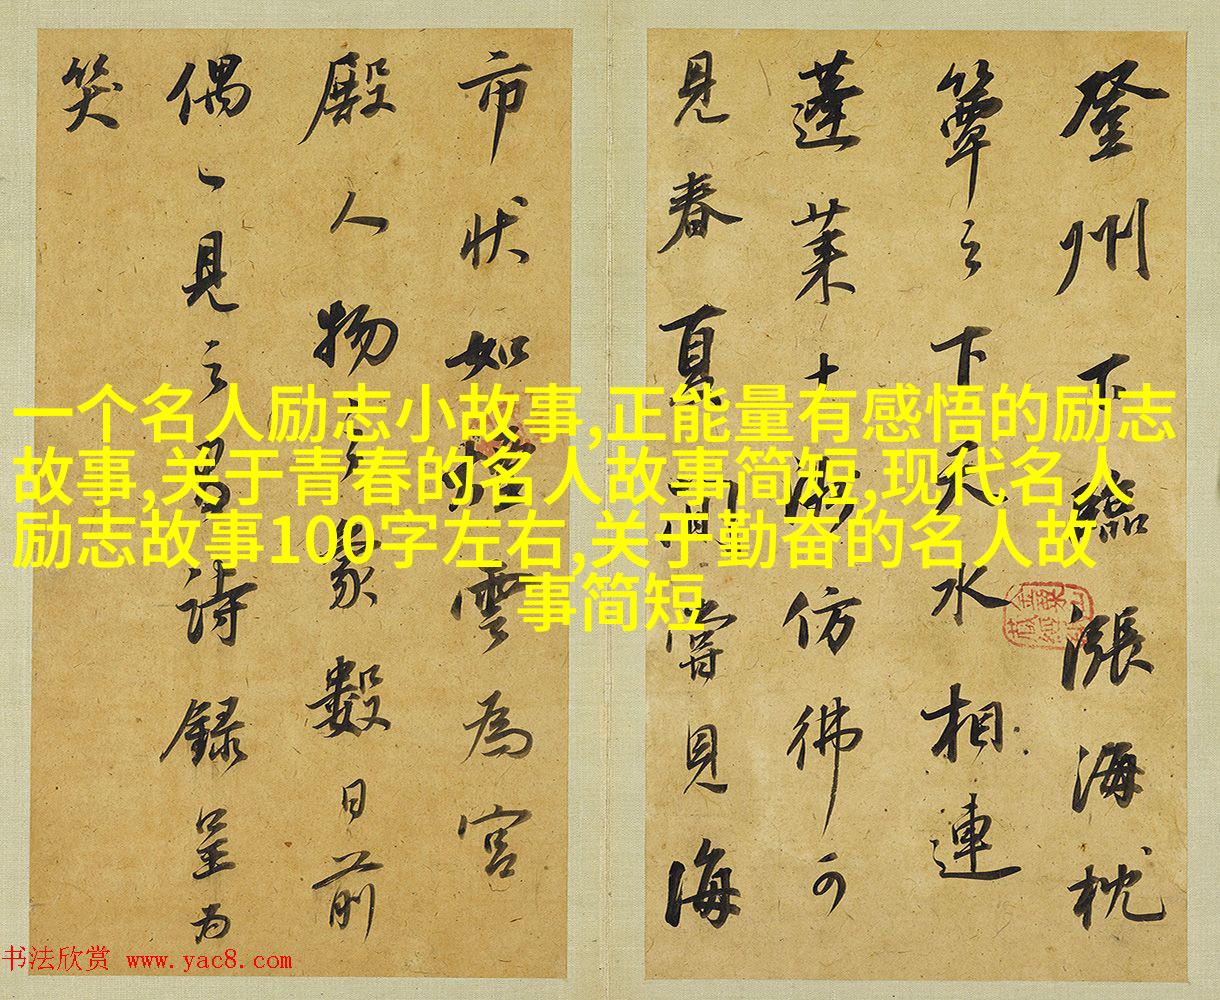 登州下臨漲海枕
簟之下天水相連
蓬莱十洲仿佛可
見春夏間嘗見海
市状如雲為宮
殿人物之象數日前
偶見之詩録呈為
笑
一个名人励志小故事,正能量有感悟的励志
故事,关于青春的名人故事简短,现代名人
励志故事100字左右,关于勤奋的名人故
事简短
书法欣赏 www.yac8.com